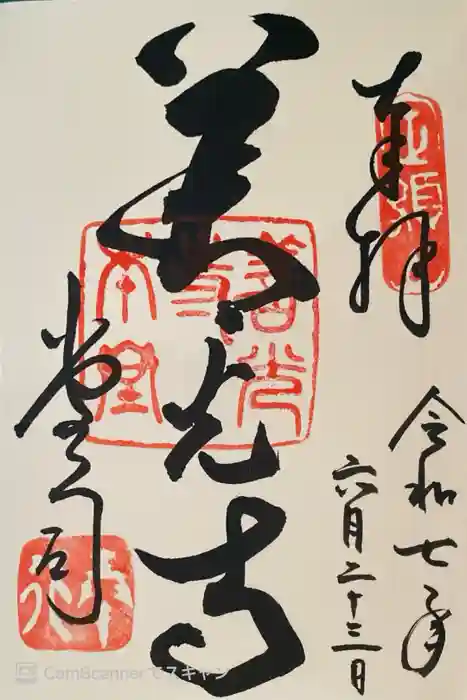 奉拝
令和七年
六月二十三日
善光寺
堂司
CamScannerでスキャン